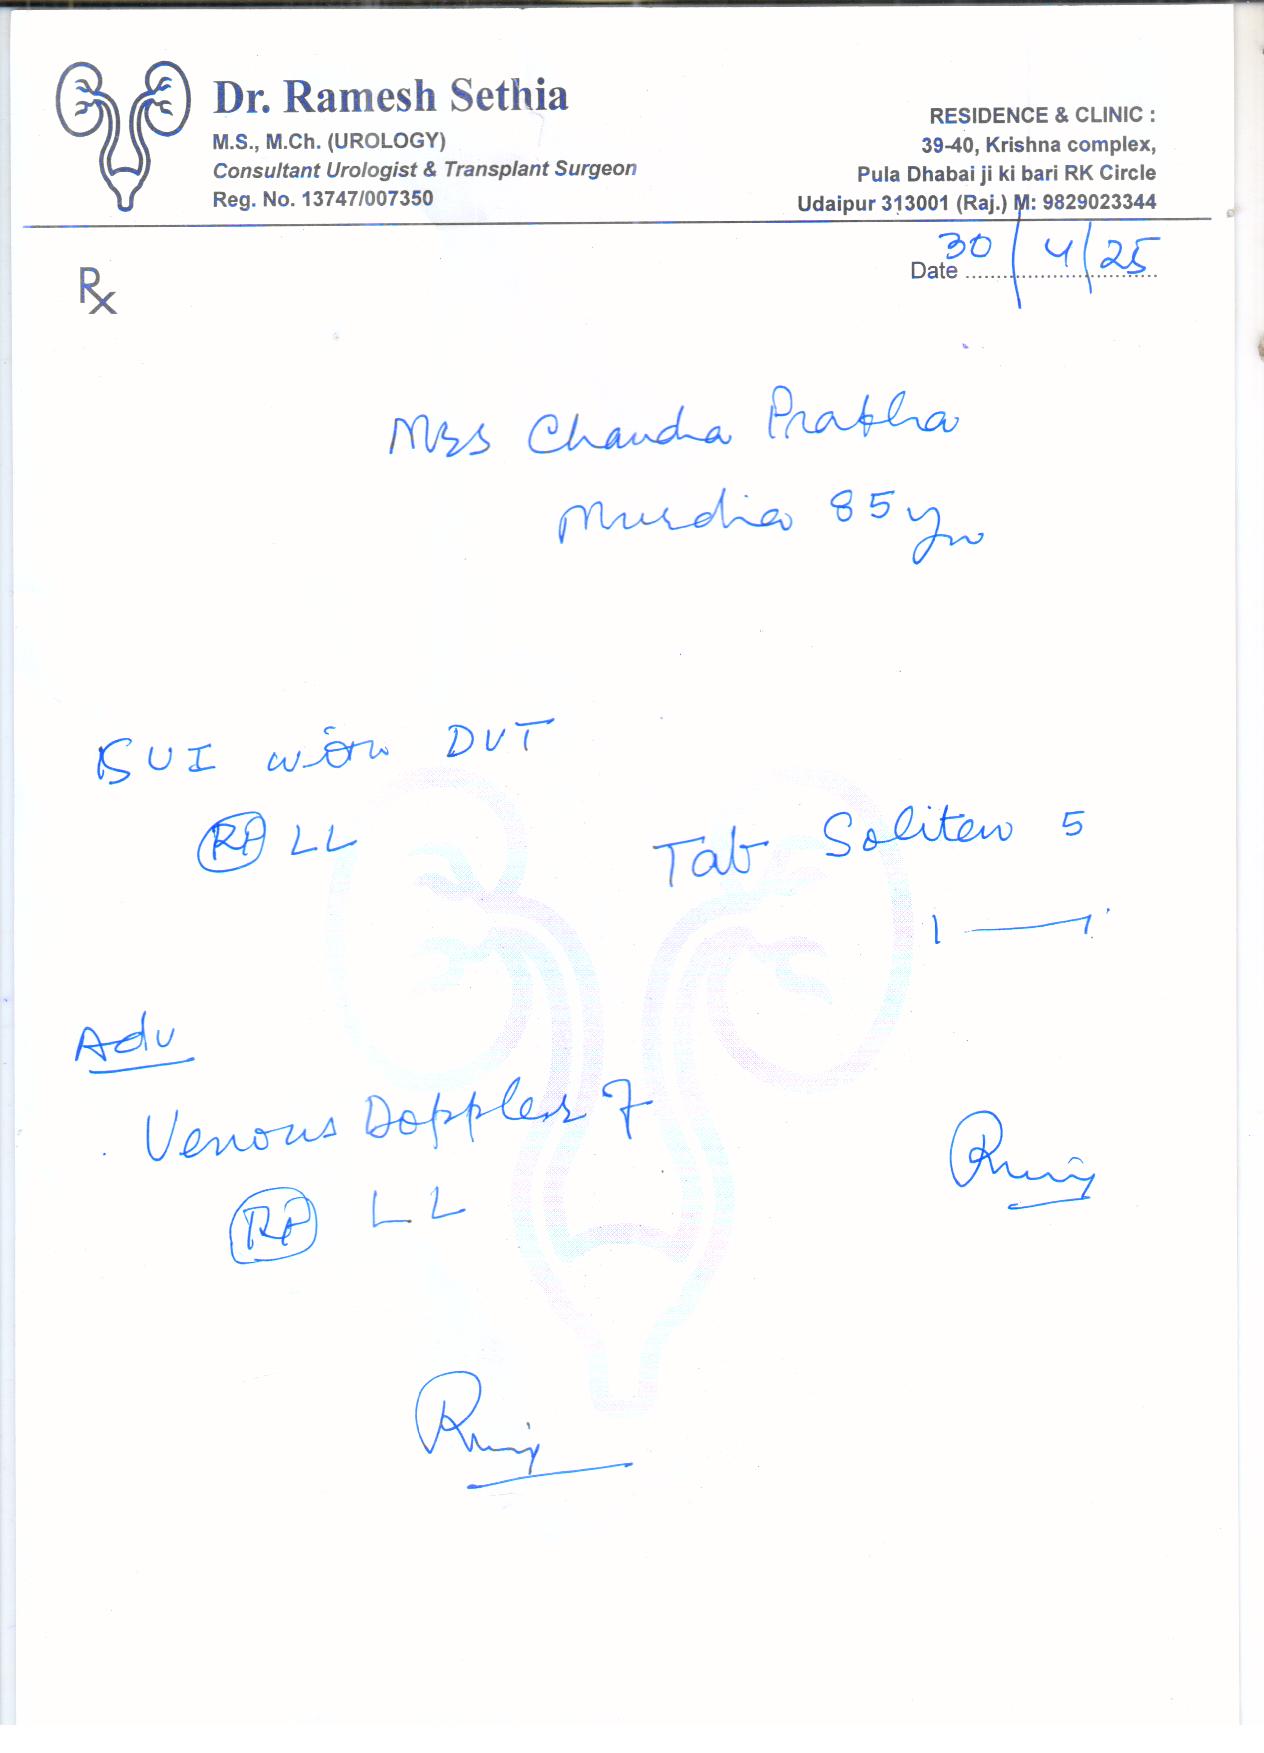 Dr. Ramesh Sethia
M.S., M.Ch. (UROLOGY)
Consultant Urologist & Transplant Surgeon
Reg. No. 13747/007350
RESIDENCE & CLINIC :
39-40, Krishna complex,
Pula Dhabai ji ki bari RK Circle
Udaipur 313001 (Raj.) M: 9829023344
Date 30/4/25
Rx
Mrs Chandra Prabha
Murdia 85 yrs
SUI with DVT
Rt LL
Tab Soliten 5
Adv
Venous Doppler of
Rt LL